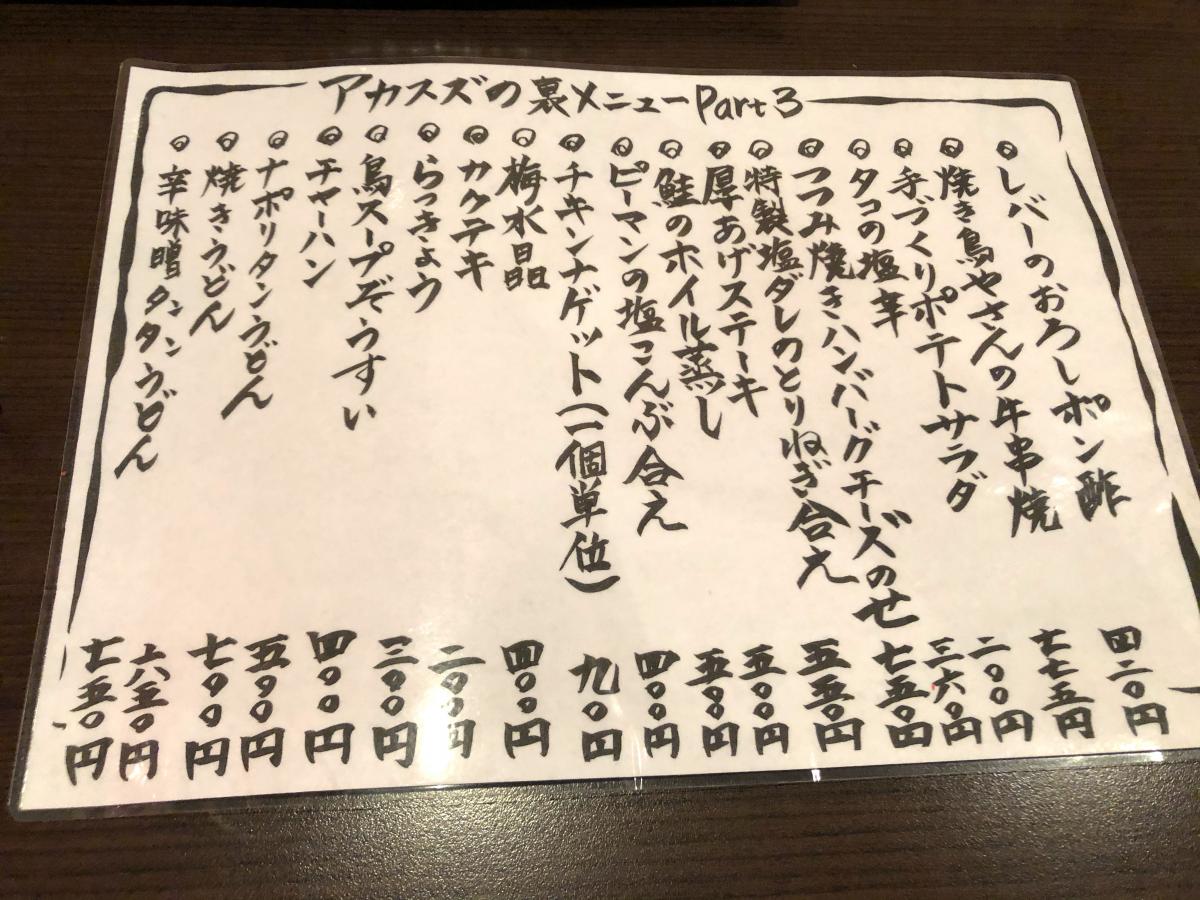 アカスズの裏メニューPart3
◎レバーのおろしポン酢 四二〇円
◎焼き鳥やさんの牛串焼 七七五円
◎手づくりポテトサラダ 二〇〇円
◎タコの塩辛 三六〇円
◎つつみ焼きハンバーグチーズのせ 七五〇円
◎特製塩ダレのとりねぎ合え 五五〇円
◎厚あげステーキ 五〇〇円
◎鮭のホイル蒸し 五〇〇円
◎ピーマンの塩こんぶ合え 四〇〇円
◎チキンナゲット(一個単位) 九〇円
◎梅水晶 四〇〇円
◎カクテキ 二〇〇円
◎らっきょう 三〇〇円
◎鳥スープぞうすい 四〇〇円
◎チャーハン 五〇〇円
◎ナポリタンうどん 七〇〇円
◎焼きうどん 六五〇円
◎辛味噌タンタンうどん 七五〇円